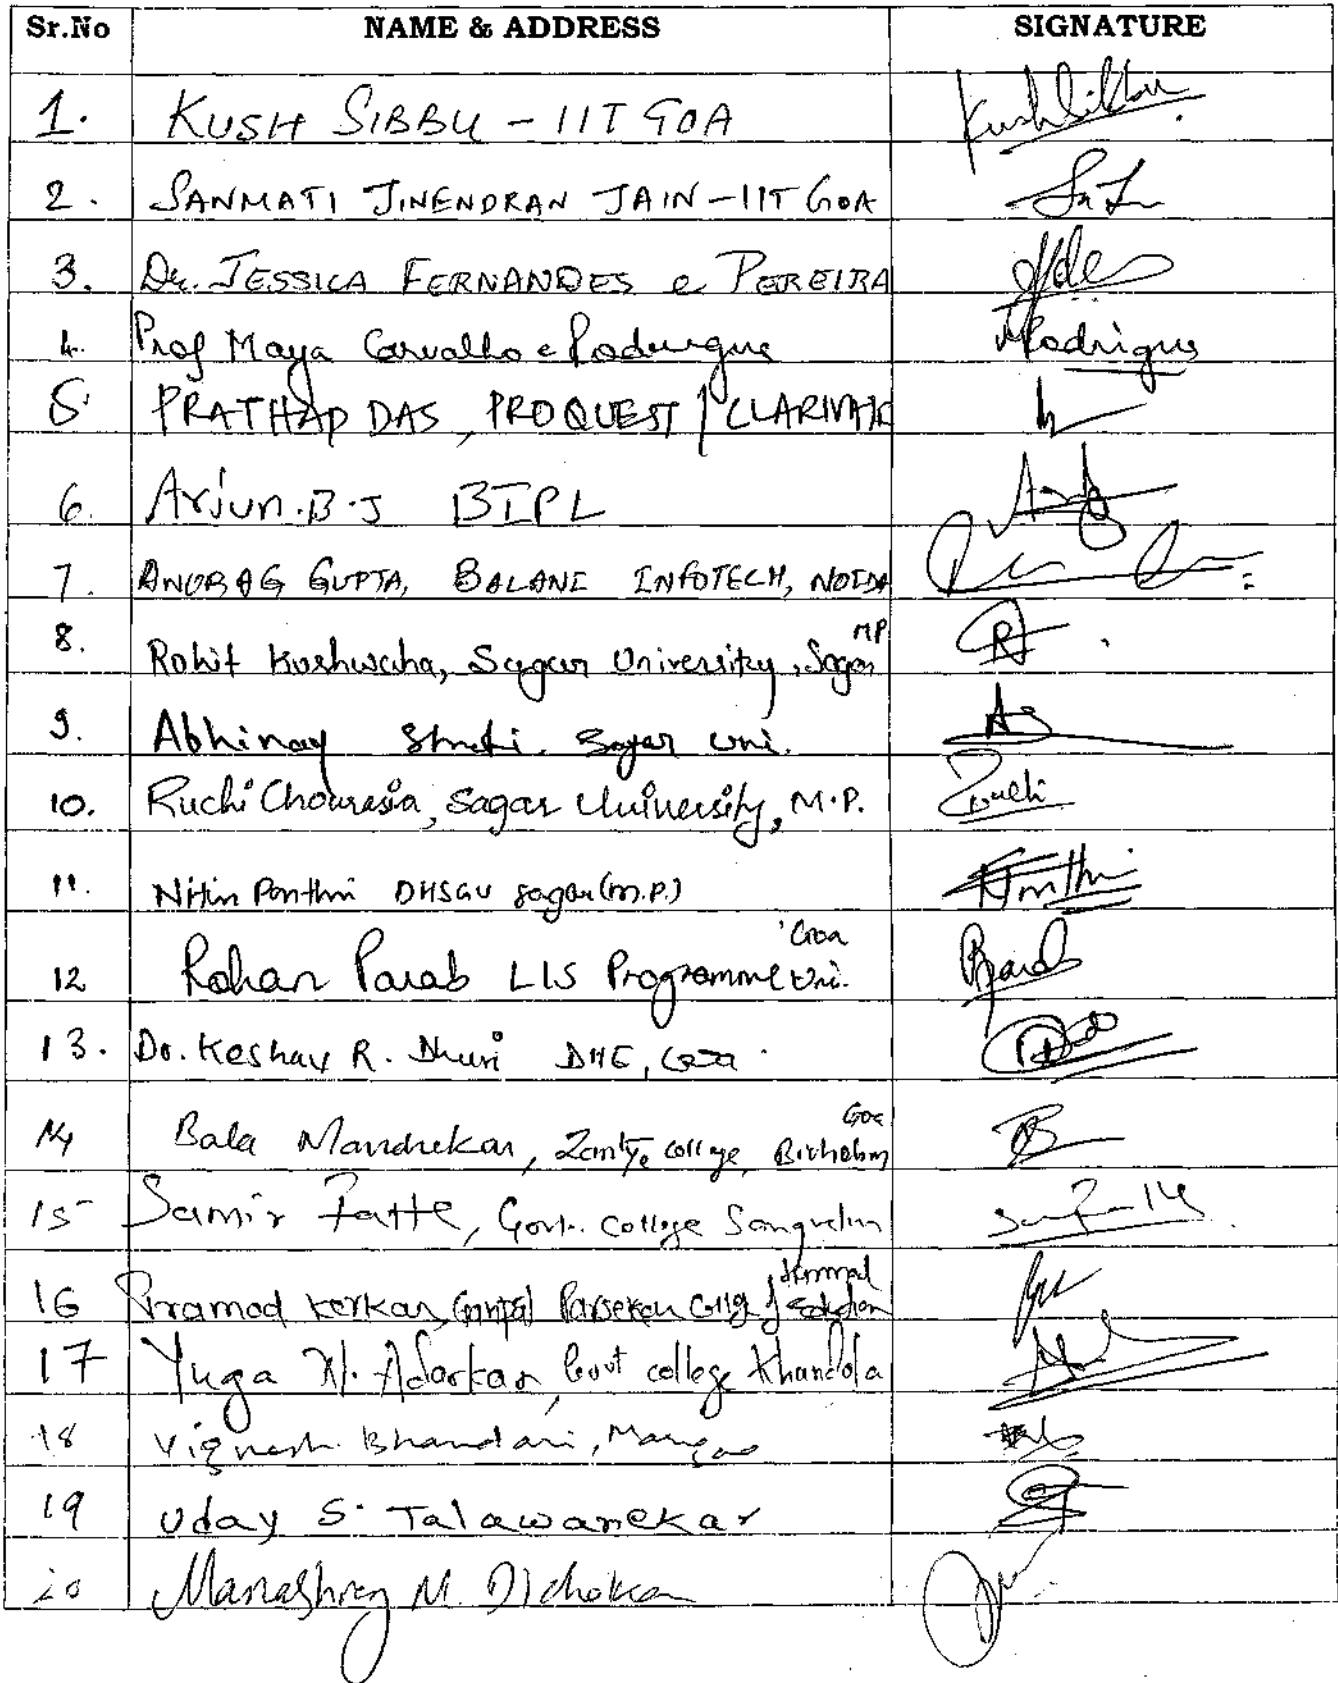 Sr.No NAME & ADDRESS SIGNATURE
1. KUSH SIBBU - IIT GOA
2. SANMATI JINENDRAN JAIN - IIT GOA
3. Dr. JESSICA FERNANDES e PEREIRA
4. Prof Maya Carvalho e Rodrigues Rodrigues
5. PRATHAP DAS, PROQUEST / CLARIVATE
6. Arjun.B.J BIPL
7. ANURAG GUPTA, BALANI INFOTECH, NOIDA
8. Rohit Kushwaha, Sagar University, Sagar MP
9. Abhinay Sagar Uni.
10. Ruchi Chourasia, Sagar University, M.P. Ruchi
11. Nitin Panthi DHSGU Sagar (M.P.)
12 Rohan Parab LIS Programme Goa Uni. RParab
13. Dr. Keshav R. Dhuri DHE, Goa.
14 Bala Mandrekar, Zantye College, Bicholim Goa
15 Samir Fatte, Govt. College Sanquelim
16 Pramod Kerkar, Ganpat Parsekar College of Education Harmal
17 Yuga N. Adarkar, Govt college Khandola
18 Vignesh Bhandari, Margao
19 Uday S. Talawanekar
20 Manashrey M.